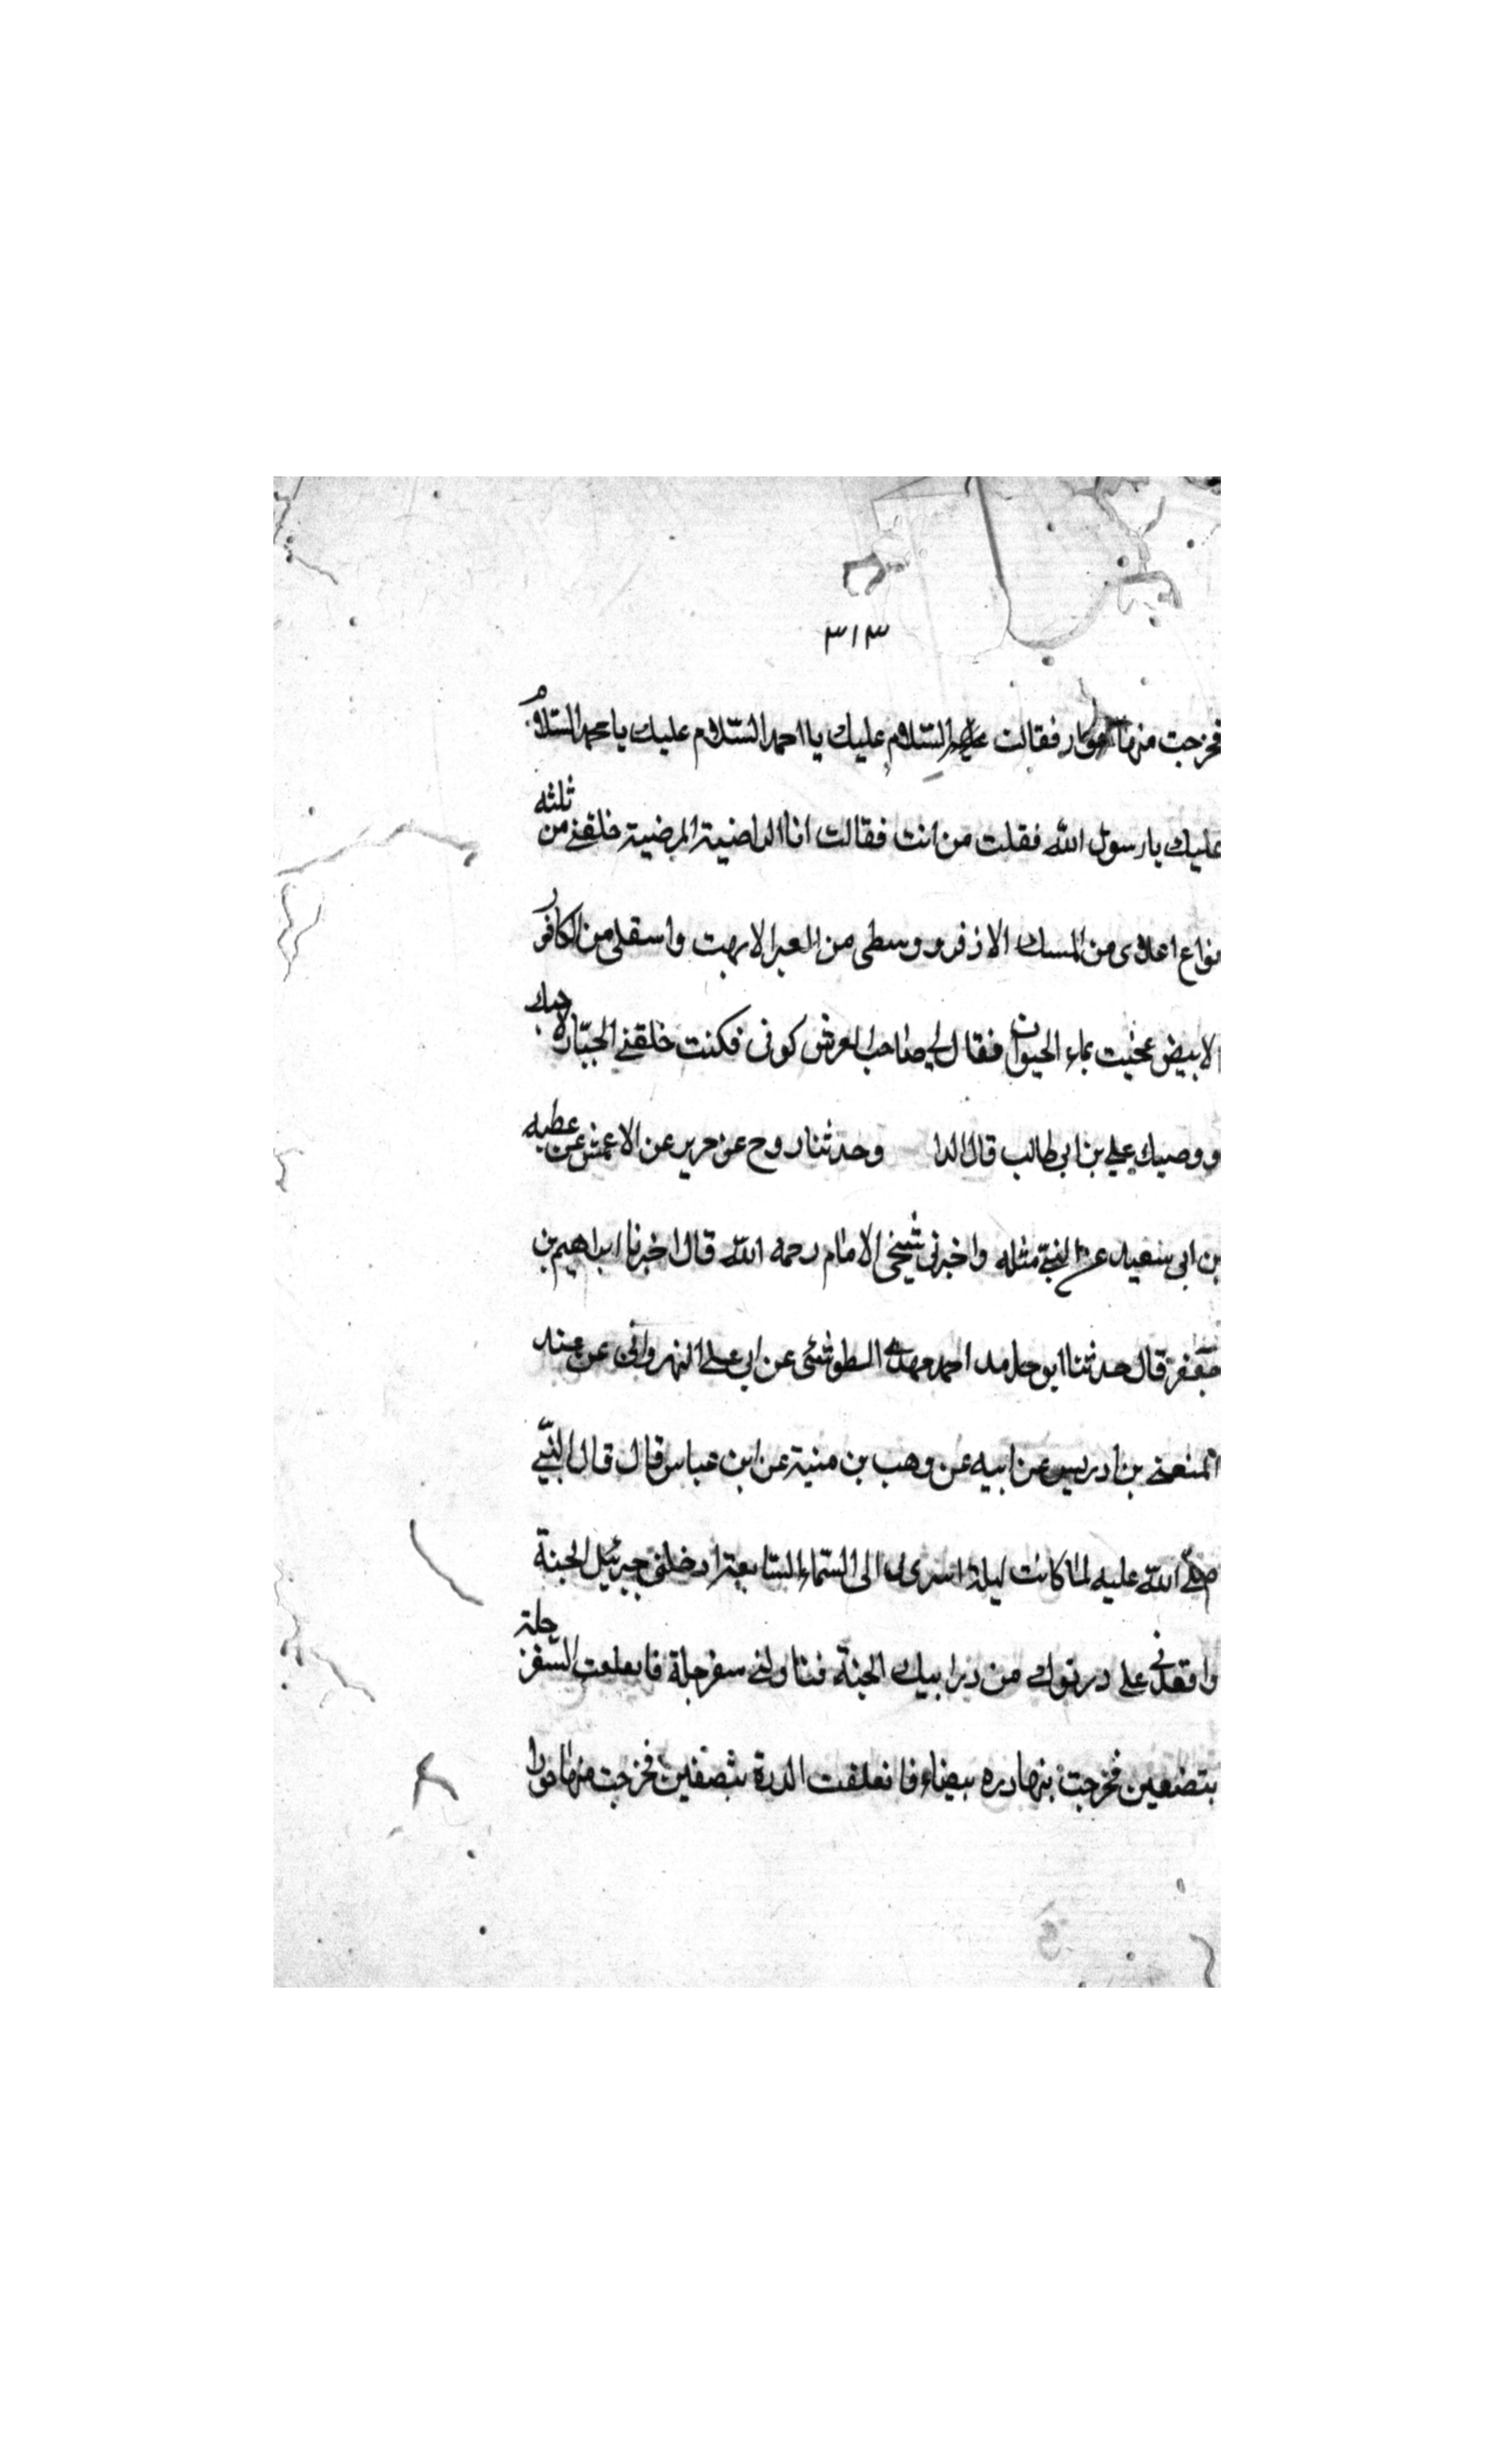 ٣١٣
فخرجت منها فقالت السلام عليك يا احمد السلام عليك يا محمد السلام
عليك يا رسول الله فقلت من انت فقالت انا الراضية المرضية خلقنى من ثلثه
نواع اعلاى من المسك الاذفر و وسطى من العبر الابهت واسفلى من الكافور
الابيض عجنت بماء الحيوان فقال لى صاحب العرش كونى فكنت خلقنى الجبار لاخيك
ووصيك على بن ابى طالب قال الدا وحدثنا روح عن حرير عن الاعمش عن عطيه
بن ابى سعيد عن النبى مثله واخبرنى شيخى الامام رحمه الله قال اخبرنا ابراهيم بن
جعفر قال حدثنا ابو حامد احمد مهدى الطوشى عن ابى على النهروانى عن عبد
المنعم بن ادريس عن ابيه عن وهب بن منية عن ابن عباس قال قال النبى
صلى الله عليه لما كانت ليلة اسرى لى الى السماء السابعة ادخلنى جبرئيل الجنة
واقعدنى على درنوك من درابيك الجنة فناولنى سفرجلة فانفلقت السفرجلة
بنصفين فخرجت منها دره بيضاء فانفلقت الدرة بنصفين فخرجت منها حورا